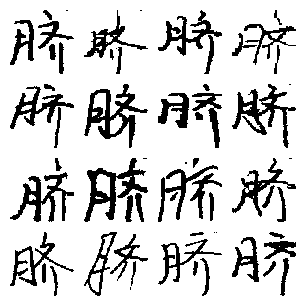 脐脐脐脐
脐脐脐脐
脐脐脐脐
脐脐脐脐